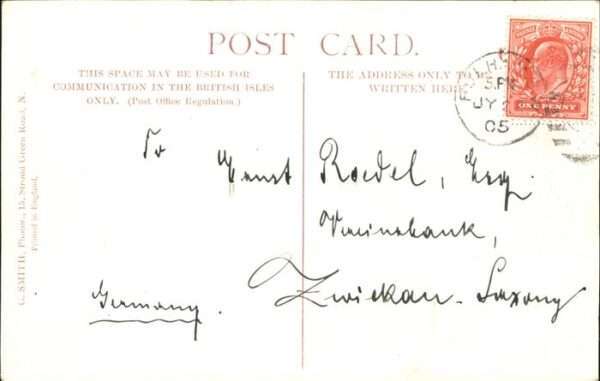 POST CARD.
THIS SPACE MAY BE USED FOR
COMMUNICATION IN THE BRITISH ISLES
ONLY. (Post Office Regulation.)
THE ADDRESS ONLY TO
WRITTEN HERE
ONE PENNY
5.PM
JY
05
To Ernst Roedel, Esq.
Vereinsbank,
Zwickau-Saxony
Germany.
G. SMITH, Photor., 15, Stroud Green Road, N.
Printed in England.